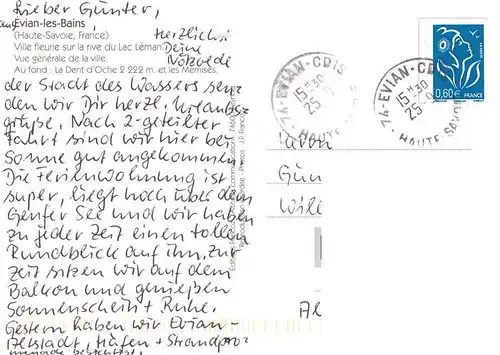 Lieber Günter,
aus
Evian-les-Bains
(Haute-Savoie, France)
Ville fleurie sur la rive du Lac Léman
Vue générale de la ville.
Au fond : La Dent d'Oche 2 222 m. et les Mémises.
Herzlichst
Deine
der Stadt des Wassers sen-
den wir Dir herzl. Urlaubs-
grüße. Nach 2-geteilter
Fahrt sind wir hier bei
Sonne gut angekommen.
Die Ferienwohnung ist
super, liegt hoch über dem
Genfer See und wir haben
zu jeder Zeit einen tollen
Rundblick auf ihn. Zur
Zeit sitzen wir auf dem
Balkon und genießen
Sonnenschein + Ruhe.
Gestern haben wir Evian-
Altstadt, Hafen + Strandpro-
menade besichtigt.
74-EVIAN-CDIS
15H30
25
HAUTE SAVOIE
74-EVIAN-CDIS
15H30
25
HAUTE SAVOIE
0,60 €
FRANCE
Gün